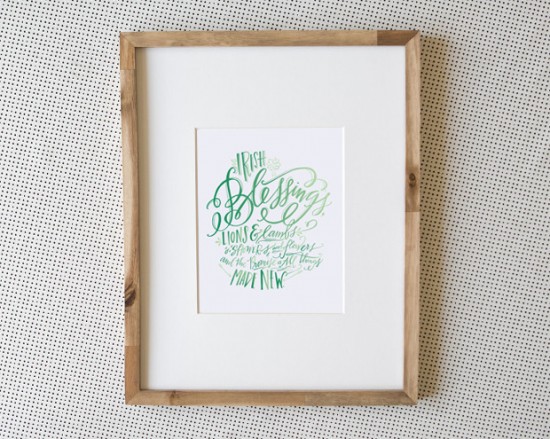 IRISH
Blessings,
LIONS & lambs
& Shamrocks, and flowers
and the Promise of All things
MADE NEW